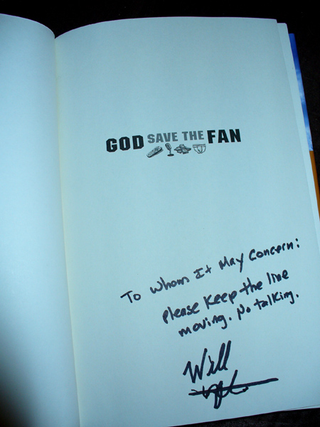 GOD SAVE THE FAN
To Whom It May Concern:
Please Keep the line
moving. No talking.
Will